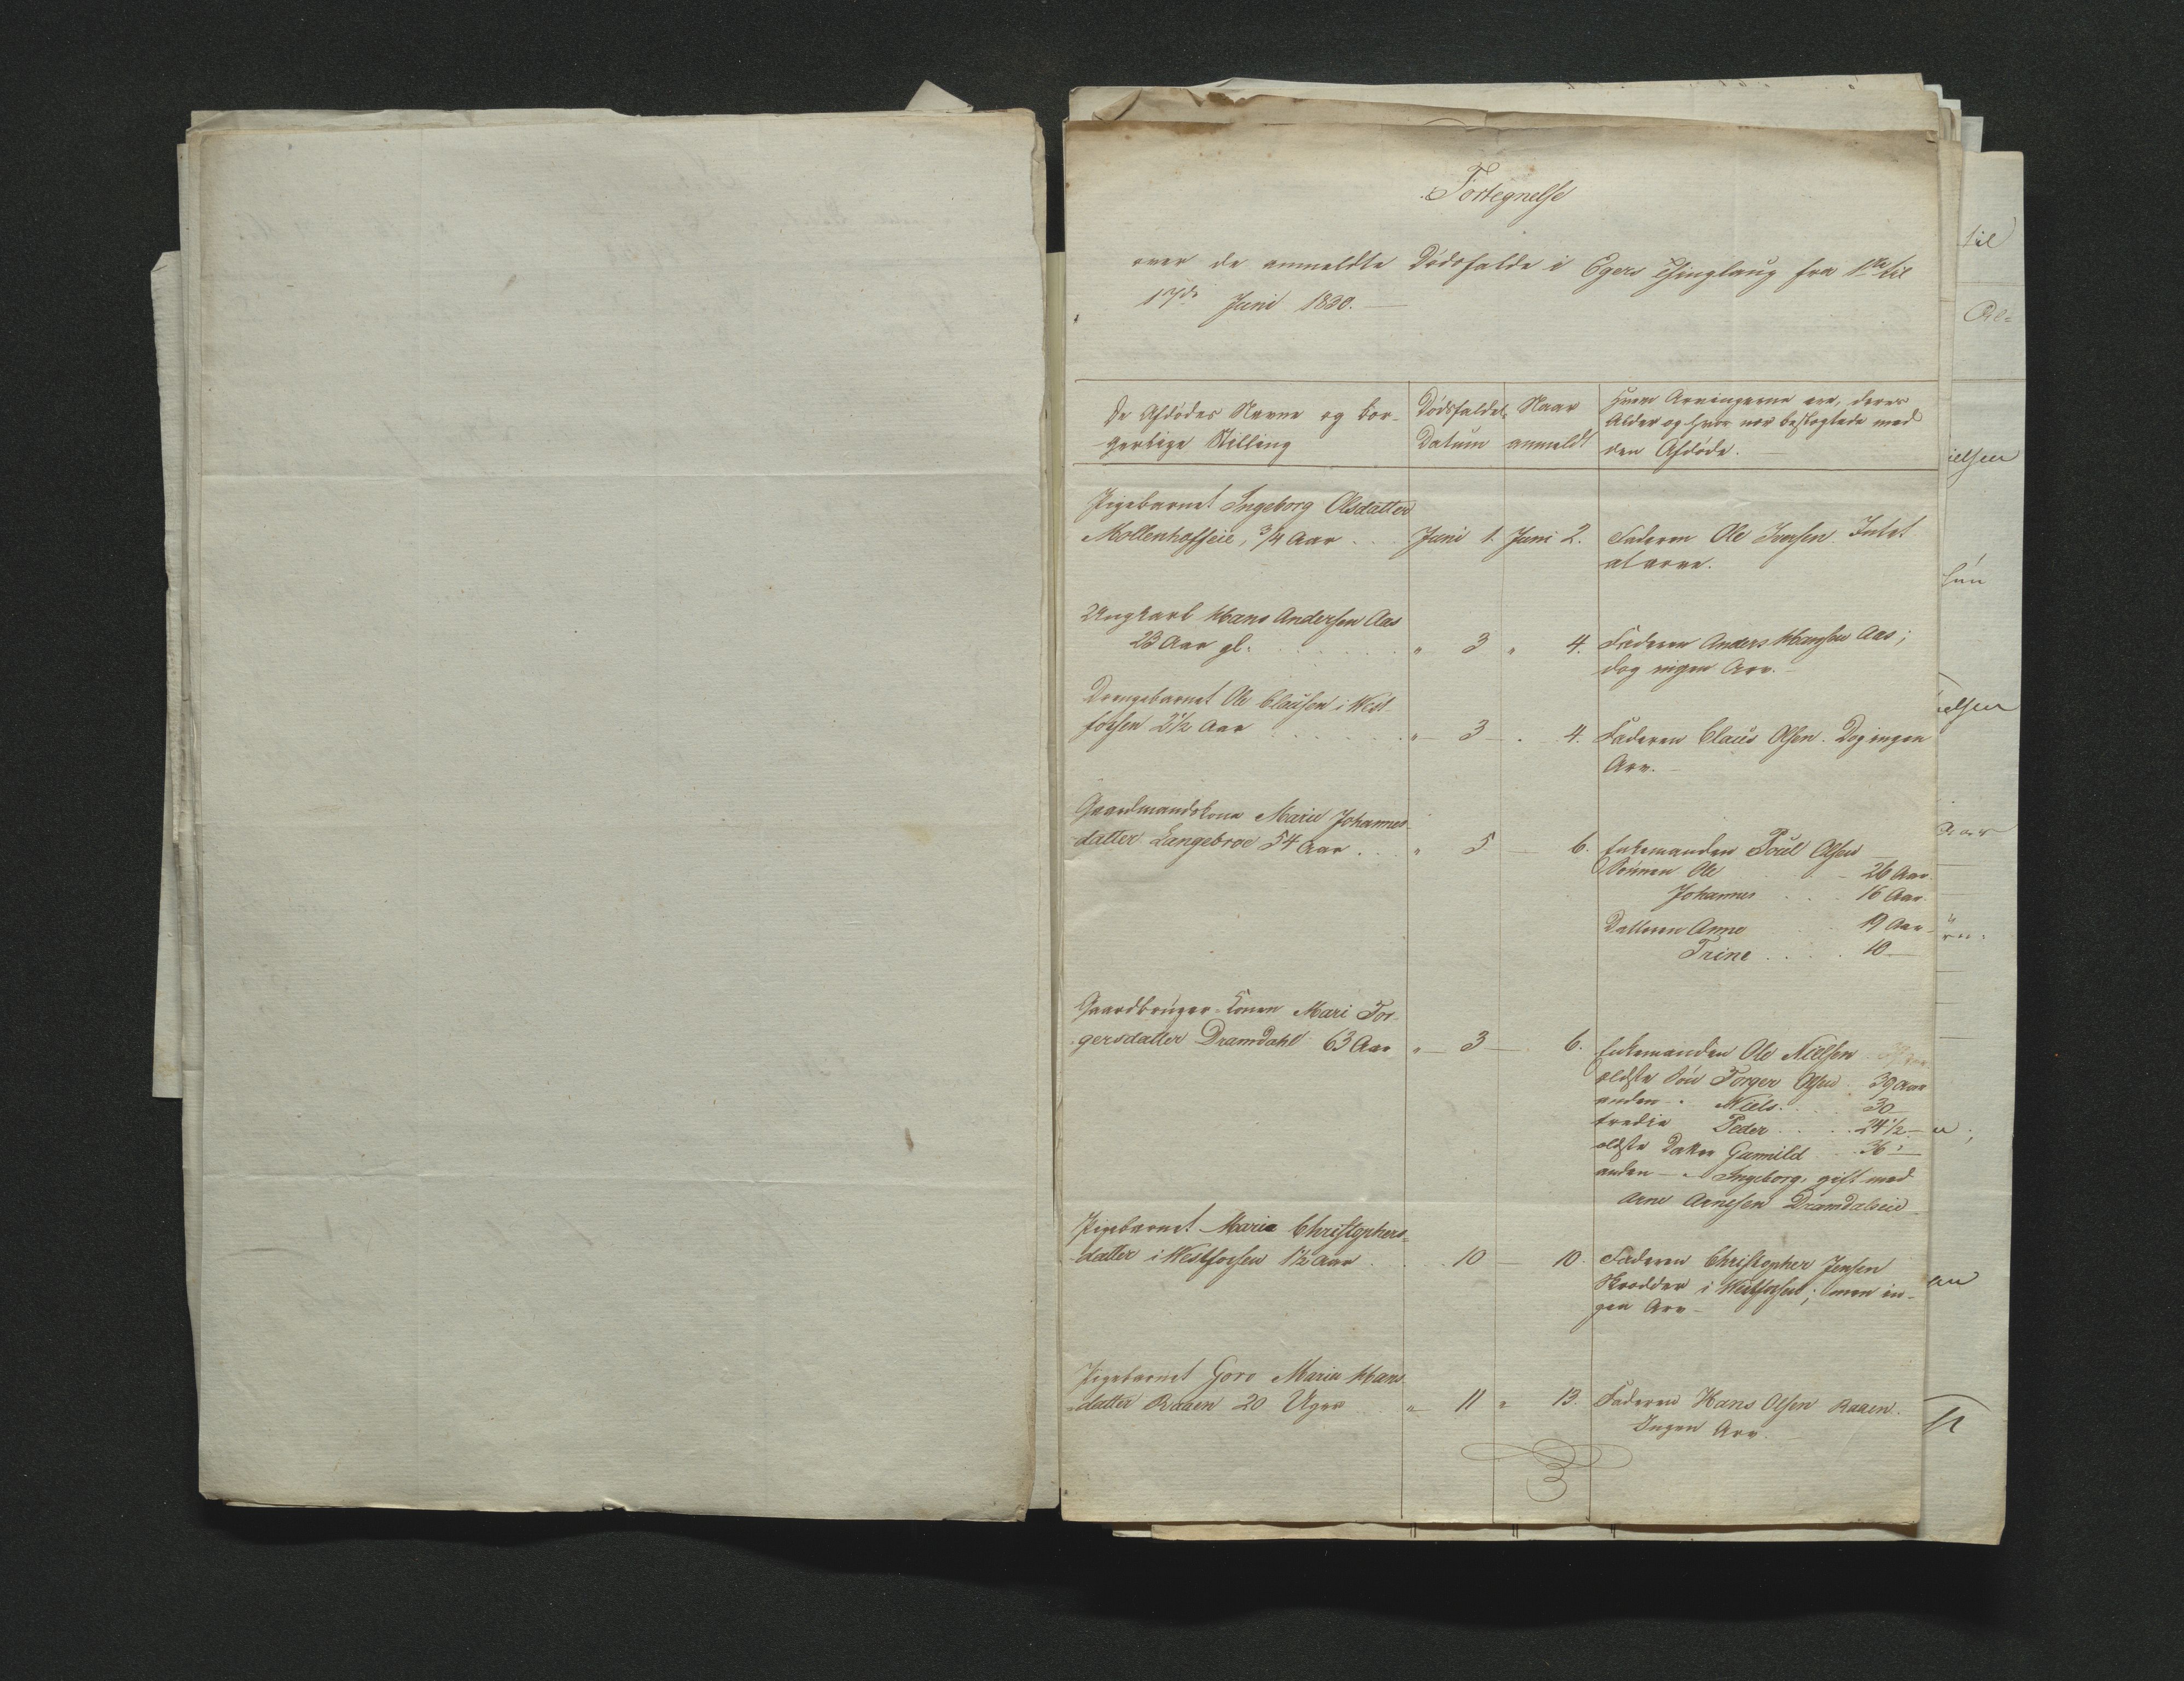 Fortegnelse
over de anmeldte Dødsfalde i Egers Thinglaug fra 1ste til
17de Juni 1830.
De Afdødes Navne og bor-
gerlige Stilling
Dødsfaldets
Datum
Naar
anmeldt
Hvem Arvingerne ere, deres
Alder og hvor nær beslægtede med
den Afdøde.
Pigebarnet Ingeborg Olsdatter
Mollenhofseie, 3/4 Aar Juni 1. Juni 2. Faderen Ole Iversen. Intet
at arve.
Ungkarl Hans Andersen Aas
23 Aar gl. " 3 " 4. Faderen Anders Hansen Aas;
dog ingen Arv.
Drengebarnet Ole Clausen i Vest-
fossen 2 1/2 Aar " 3 4. Faderen Claus Olsen. Dog ingen
Arv.
Gaardmandskone Marie Johannes-
datter Langebroe 54 Aar " 5 — 6. Enkemanden Poul Olsen
Sønnen Ole 26 Aar
Johannes 16 Aar
Datteren Anne 19 Aar
Trine 10 —
Gaardbruger-Konen Mari Tor-
gersdatter Dramdahl 63 Aar " 3 — 6. Enkemanden Ole Nielsen
ældste Søn Torger Olsen 39 Aar
anden — Niels 30
tredie Peder 24 1/2 —
ældste Datter Gunnild 36 —
anden — Ingeborg, gift med
Arne Arnesen Dramdalseie
Pigebarnet Maria Christophers-
datter i Vestfossen 1 1/2 Aar 10 — 10. Faderen Christopher Jensen
Skrædder i Vestfossen; men in-
gen Arv
Pigebarnet Goro Maria Hans-
datter Raaen 20 Uger " 11 " 13. Faderen Hans Olsen Raaen.
Ingen Arv.